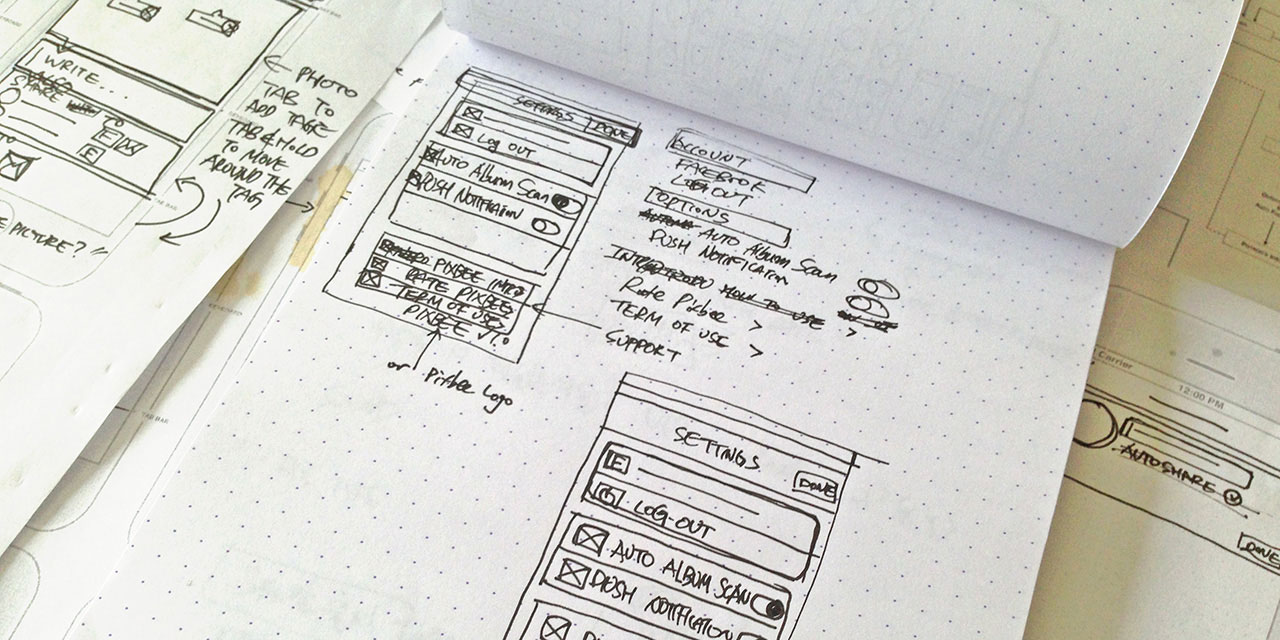 WRITE...
SHARE
TO
F
F
← PHOTO
TAB TO
ADD TAGE
TAB & HOLD
TO MOVE
AROUND THE
TAG
PICTURE?"
TAB BAR
TAB BAR
SETTINGS
DONE
LOG OUT
AUTO ALBUM SCAN
PUSH NOTIFICAION
PIXBEE INFO
RATE PIXBEE
TERM OF USE
PIXBEE V1.0
or Pixbee Logo
ACCOUNT
FACEBOOK
LOGOUT
OPTIONS
AUTO ALBUM SCAN
PUSH NOTIFICAION
HOW TO USE >
Rate Pixbee >
TERM OF USE >
SUPPORT
SETTINGS
DONE
F
LOG-OUT
AUTO ALBUM SCAN
PUSH NOTIFICATION
Carrier
12:00 PM
AUTOSHARE
DONE